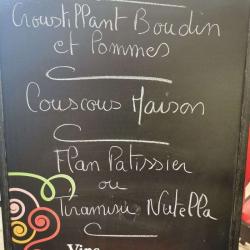 Croustillant Boudin
et Pommes
Couscous Maison
Flan Patissier
ou
Tiramisu Nutella
Vins